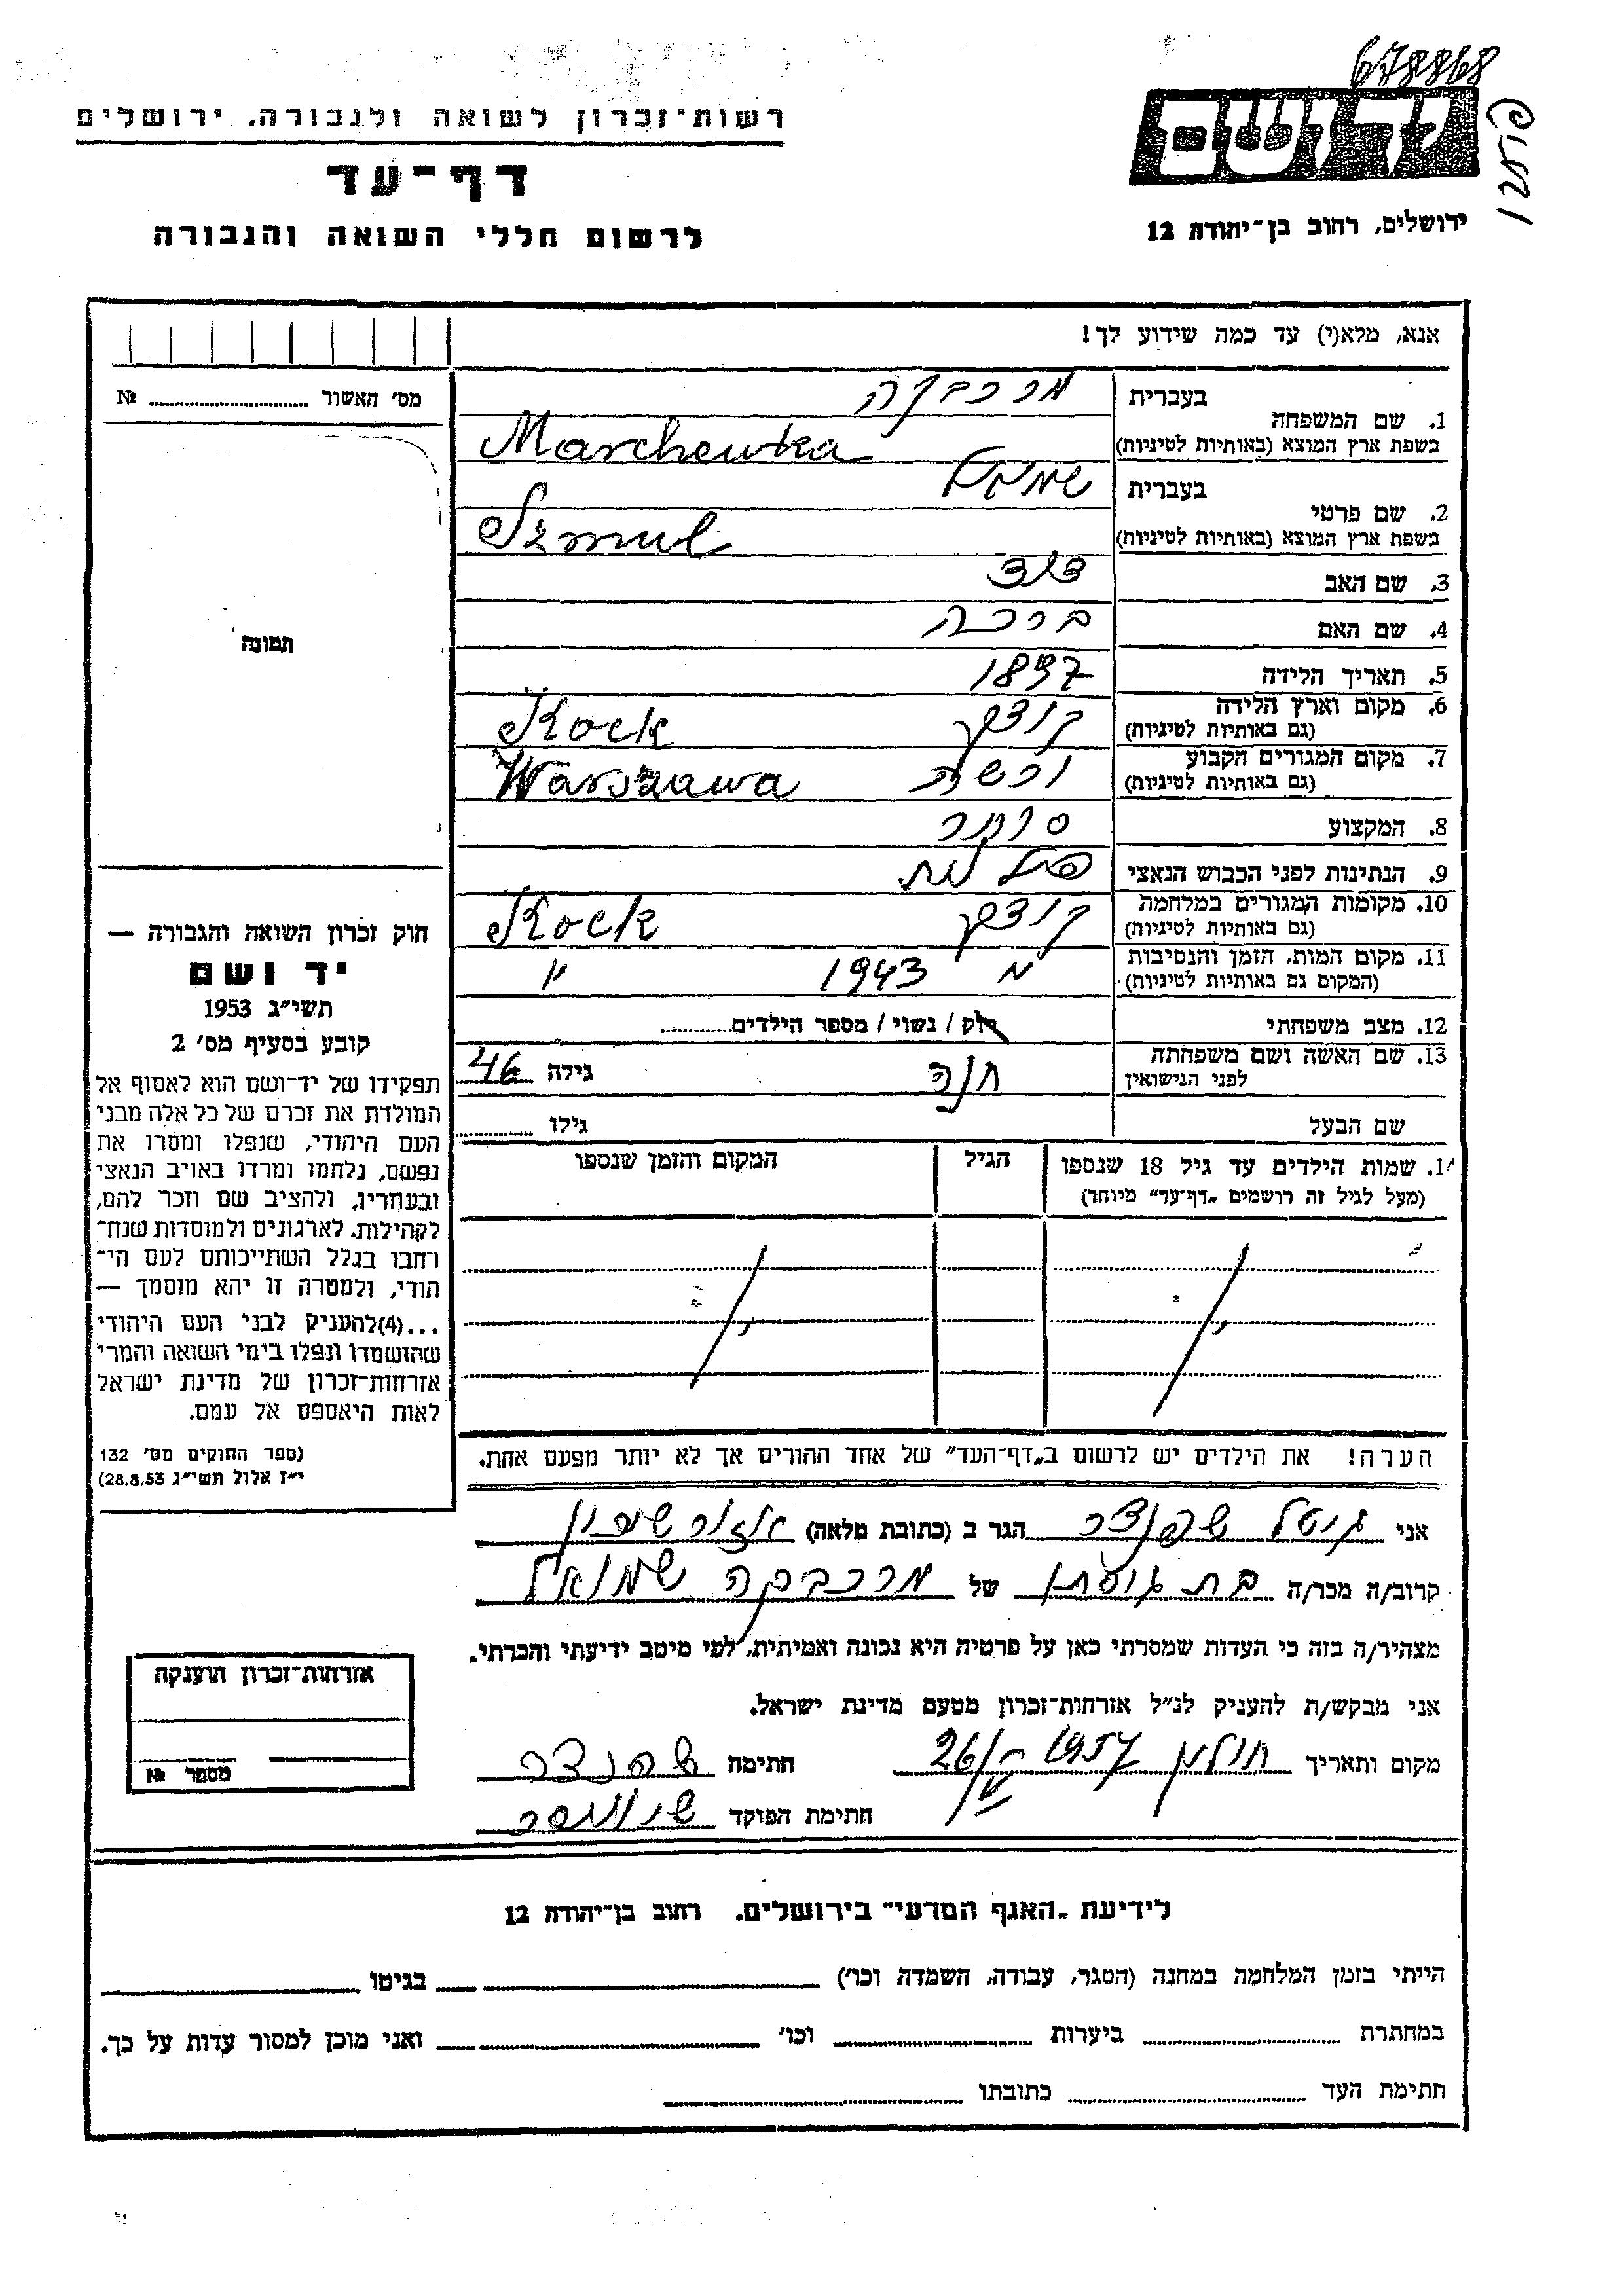 678868
רשות־זכרון לשואה ולגבורה, ירושלים
דף־עד
לרשום חללי השואה והגבורה
ידושם
ירושלים, רחוב בן־יהודה 12
אנא, מלא(י) עד כמה שידוע לך!
מס׳ האשור № ........
תמונה
1. שם המשפחה
בעברית מרכבקה
בשפת ארץ המוצא (באותיות לטיניות) Marchewka
2. שם פרטי
בעברית
בשפת ארץ המוצא (באותיות לטיניות) Szmul
3. שם האב דוד
4. שם האם ברכה
5. תאריך הלידה 1897
6. מקום וארץ הלידה (גם באותיות לטיניות) קוצק Kock
7. מקום המגורים הקבוע (גם באותיות לטיניות) ורשה Warszawa
8. המקצוע סוחר
9. הנתינות לפני הכבוש הנאצי
10. מקומות המגורים במלחמה (גם באותיות לטיניות) קוצק Kock
11. מקום המות, הזמן והנסיבות (המקום גם באותיות לטיניות) 1943 "
12. מצב משפחתי רוק / נשוי / מספר הילדים........
13. שם האשה ושם משפחתה לפני הנישואין חנה גילה 46
שם הבעל גילו ........
14. שמות הילדים עד גיל 18 שנספו (מעל לגיל זה רושמים „דף־עד" מיוחד) הגיל המקום והזמן שנספו
הערה! את הילדים יש לרשום ב„דף־העד" של אחד ההורים אך לא יותר מפעם אחת.
חוק זכרון השואה והגבורה —
יד ושם
תשי״ג 1953
קובע בסעיף מס׳ 2
תפקידו של יד־ושם הוא לאסוף אל
המולדת את זכרם של כל אלה מבני
העם היהודי, שנפלו ומסרו את
נפשם, נלחמו ומרדו באויב הנאצי
ובעחריו, ולהציב שם וזכר להם,
לקהילות, לארגונים ולמוסדות שנח־
רחבו בגלל השתייכותם לעם הי־
הודי, ולמטרה זו יהא מוסמך —
...(4)להעניק לבני העם היהודי
שהושמדו ונפלו בימי השואה והמרי
אזרחות־זכרון של מדינת ישראל
לאות היאספם אל עמם.
(ספר החוקים מס׳ 132
י״ז אלול תשי״ג 28.8.53)
אני גיטל שפנצר הגר ב (כתובת מלאה)
קרוב/ה מכר/ה בת גיסתו של מרכבקה שמואל
מצהיר/ה בזה כי העדות שמסרתי כאן על פרטיה היא נכונה ואמיתית, לפי מיטב ידיעתי והכרתי.
אני מבקש/ת להעניק לנ״ל אזרחות־זכרון מטעם מדינת ישראל.
מקום ותאריך חולון 1957 חתימה
חתימת הפוקד
אזרחות־זכרון הוענקה
מספר №
לידיעת „האגף המדעי" בירושלים, רחוב בן־יהודה 12
הייתי בזמן המלחמה במחנה (הסגר, עבודה, השמדה וכו׳) ........ בגיטו ........
במחתרת ........ ביערות ........ וכו׳ ........ ואני מוכן למסור עדות על כך.
חתימת העד ........ כתובתו ........